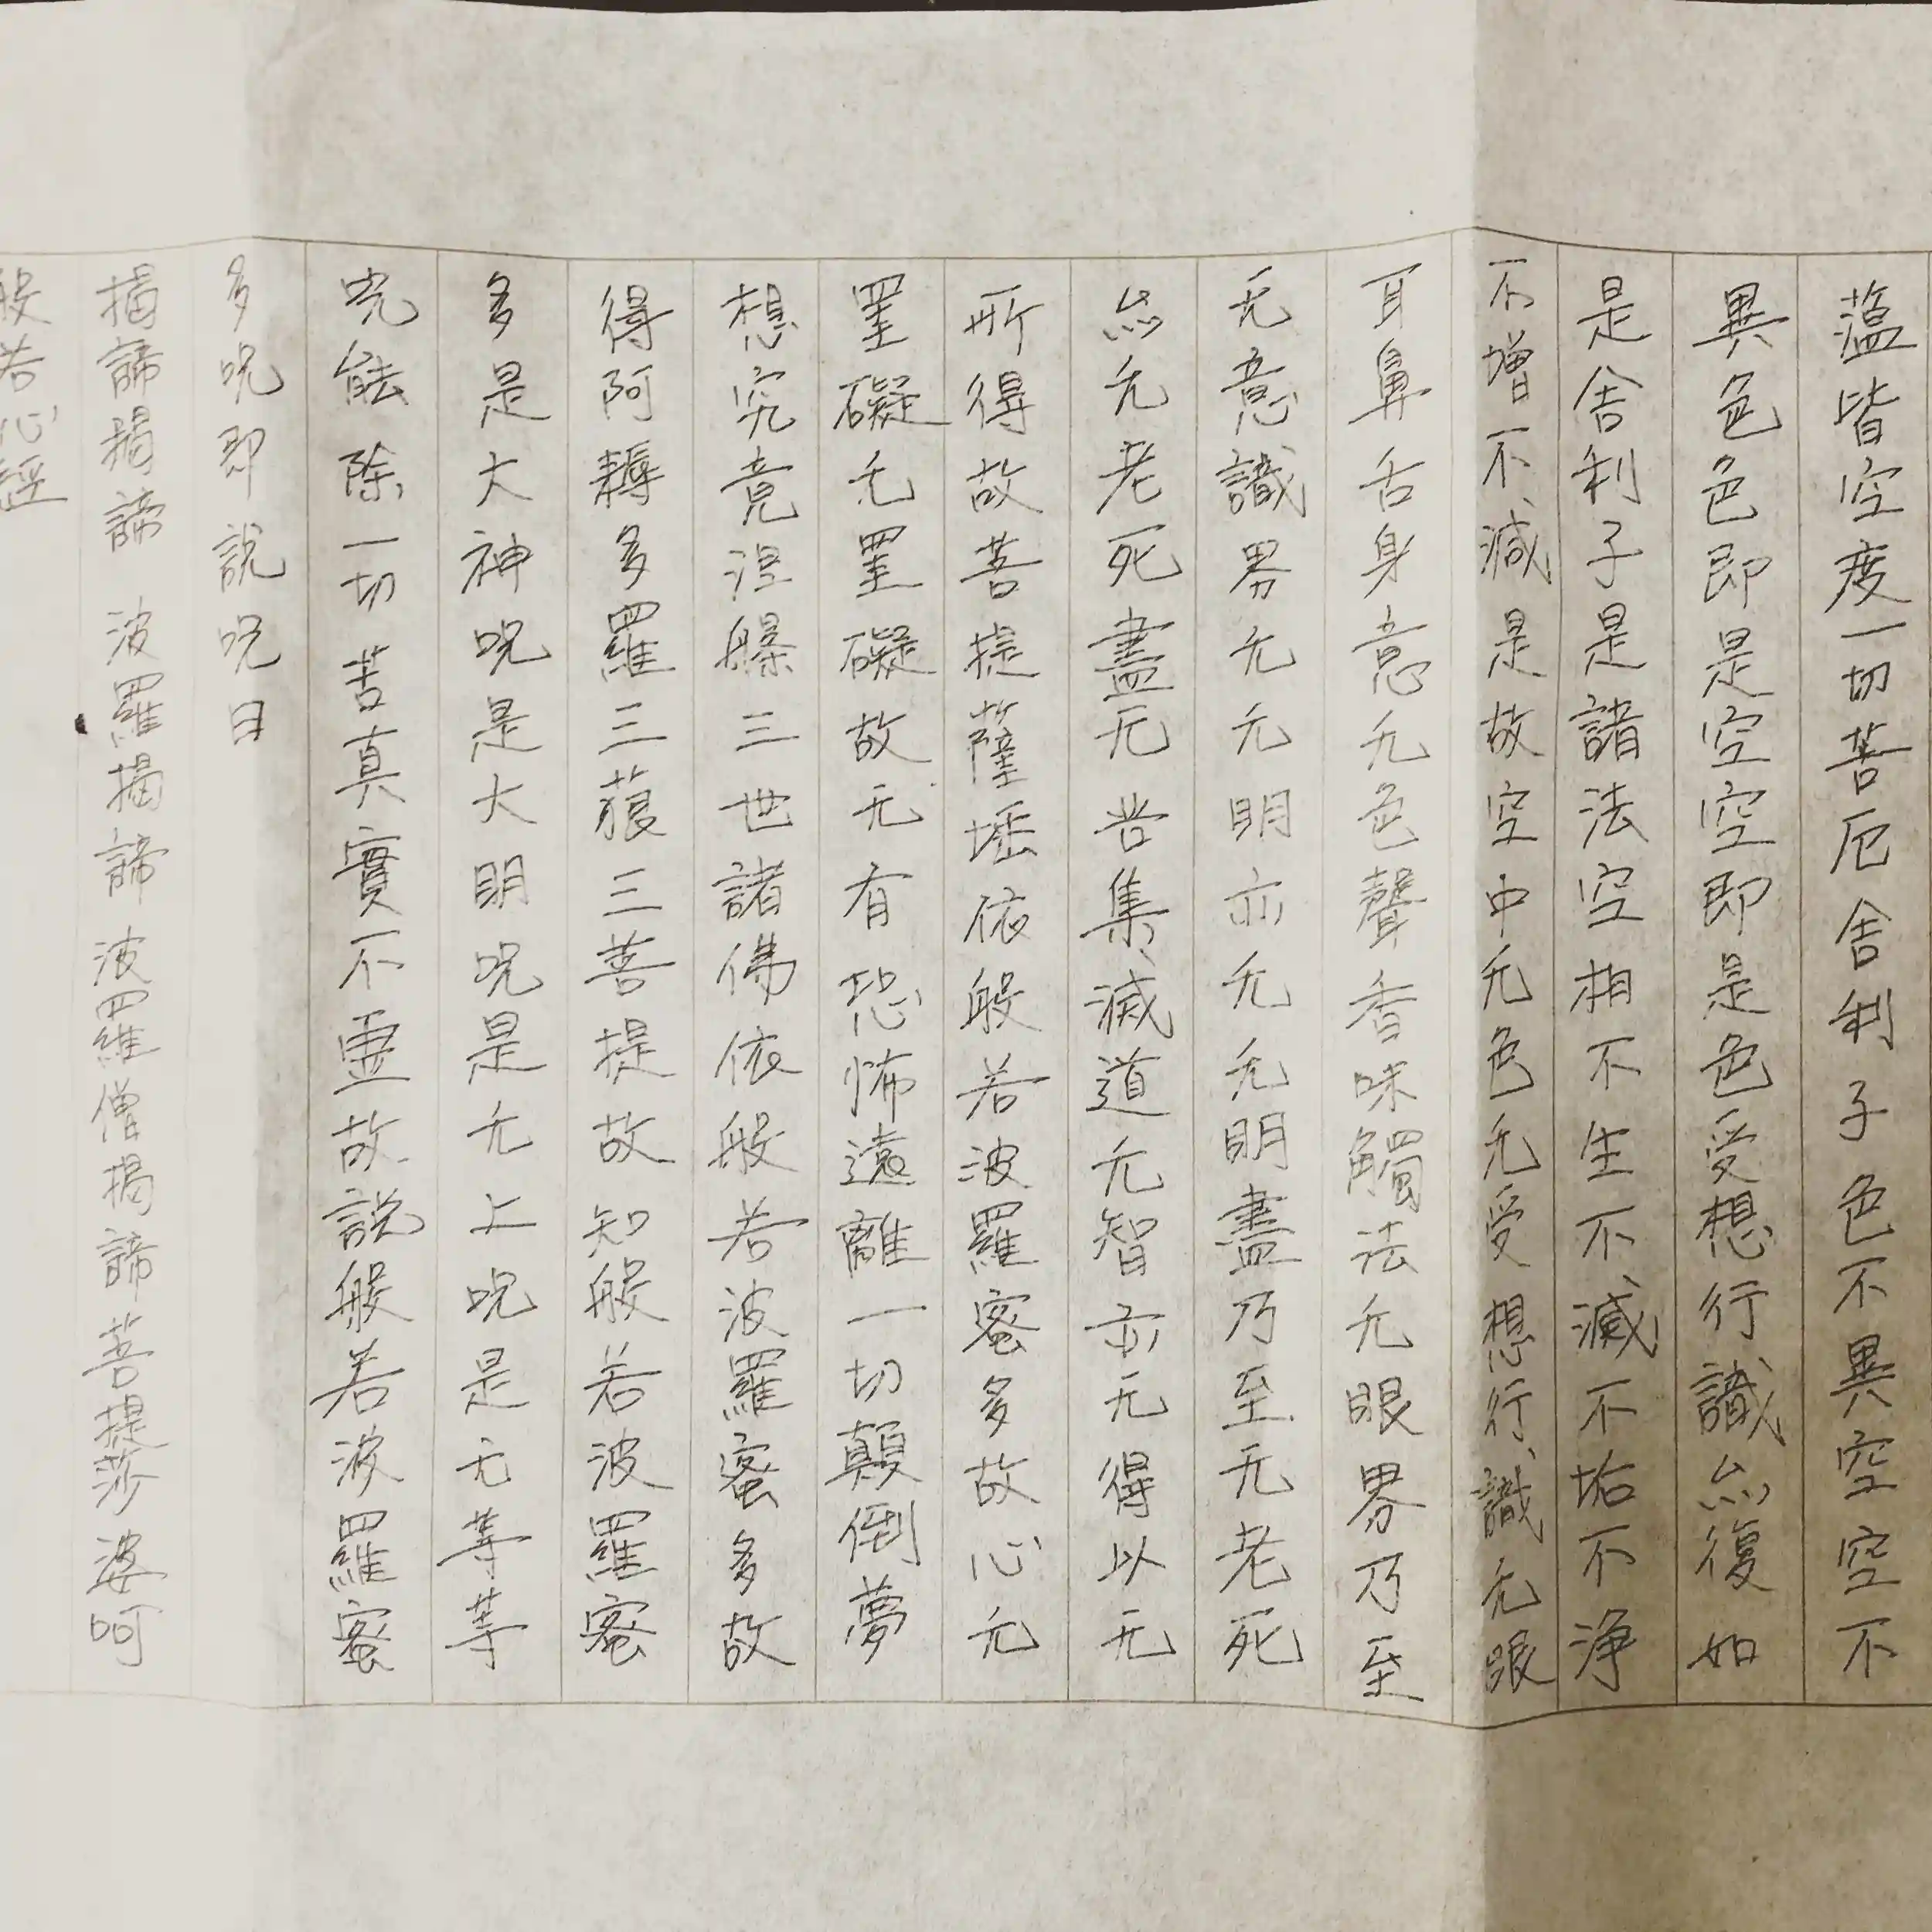 蕰皆空度一切苦厄舎利子色不異空空不
異色色即是空空即是色受想行識亦復如
是舎利子是諸法空相不生不滅不垢不浄
不增不減是故空中无色无受想行識无眼
耳鼻舌身意无色聲香味觸法无眼界乃至
无意識界无无明亦无无明盡乃至无老死
亦无老死盡无苦集滅道无智亦无得以无
所得故菩提薩埵依般若波羅蜜多故心无
罣礙无罣礙故无有恐怖遠離一切顛倒夢
想究竟涅槃三世諸佛依般若波羅蜜多故
得阿耨多羅三藐三菩提故知般若波羅蜜
多是大神呪是大明呪是无上呪是无等等
呪能除一切苦真實不虚故説般若波羅蜜
多呪即説呪曰
揭諦揭諦 波羅揭諦 波羅僧揭諦菩提莎婆呵
般若心経